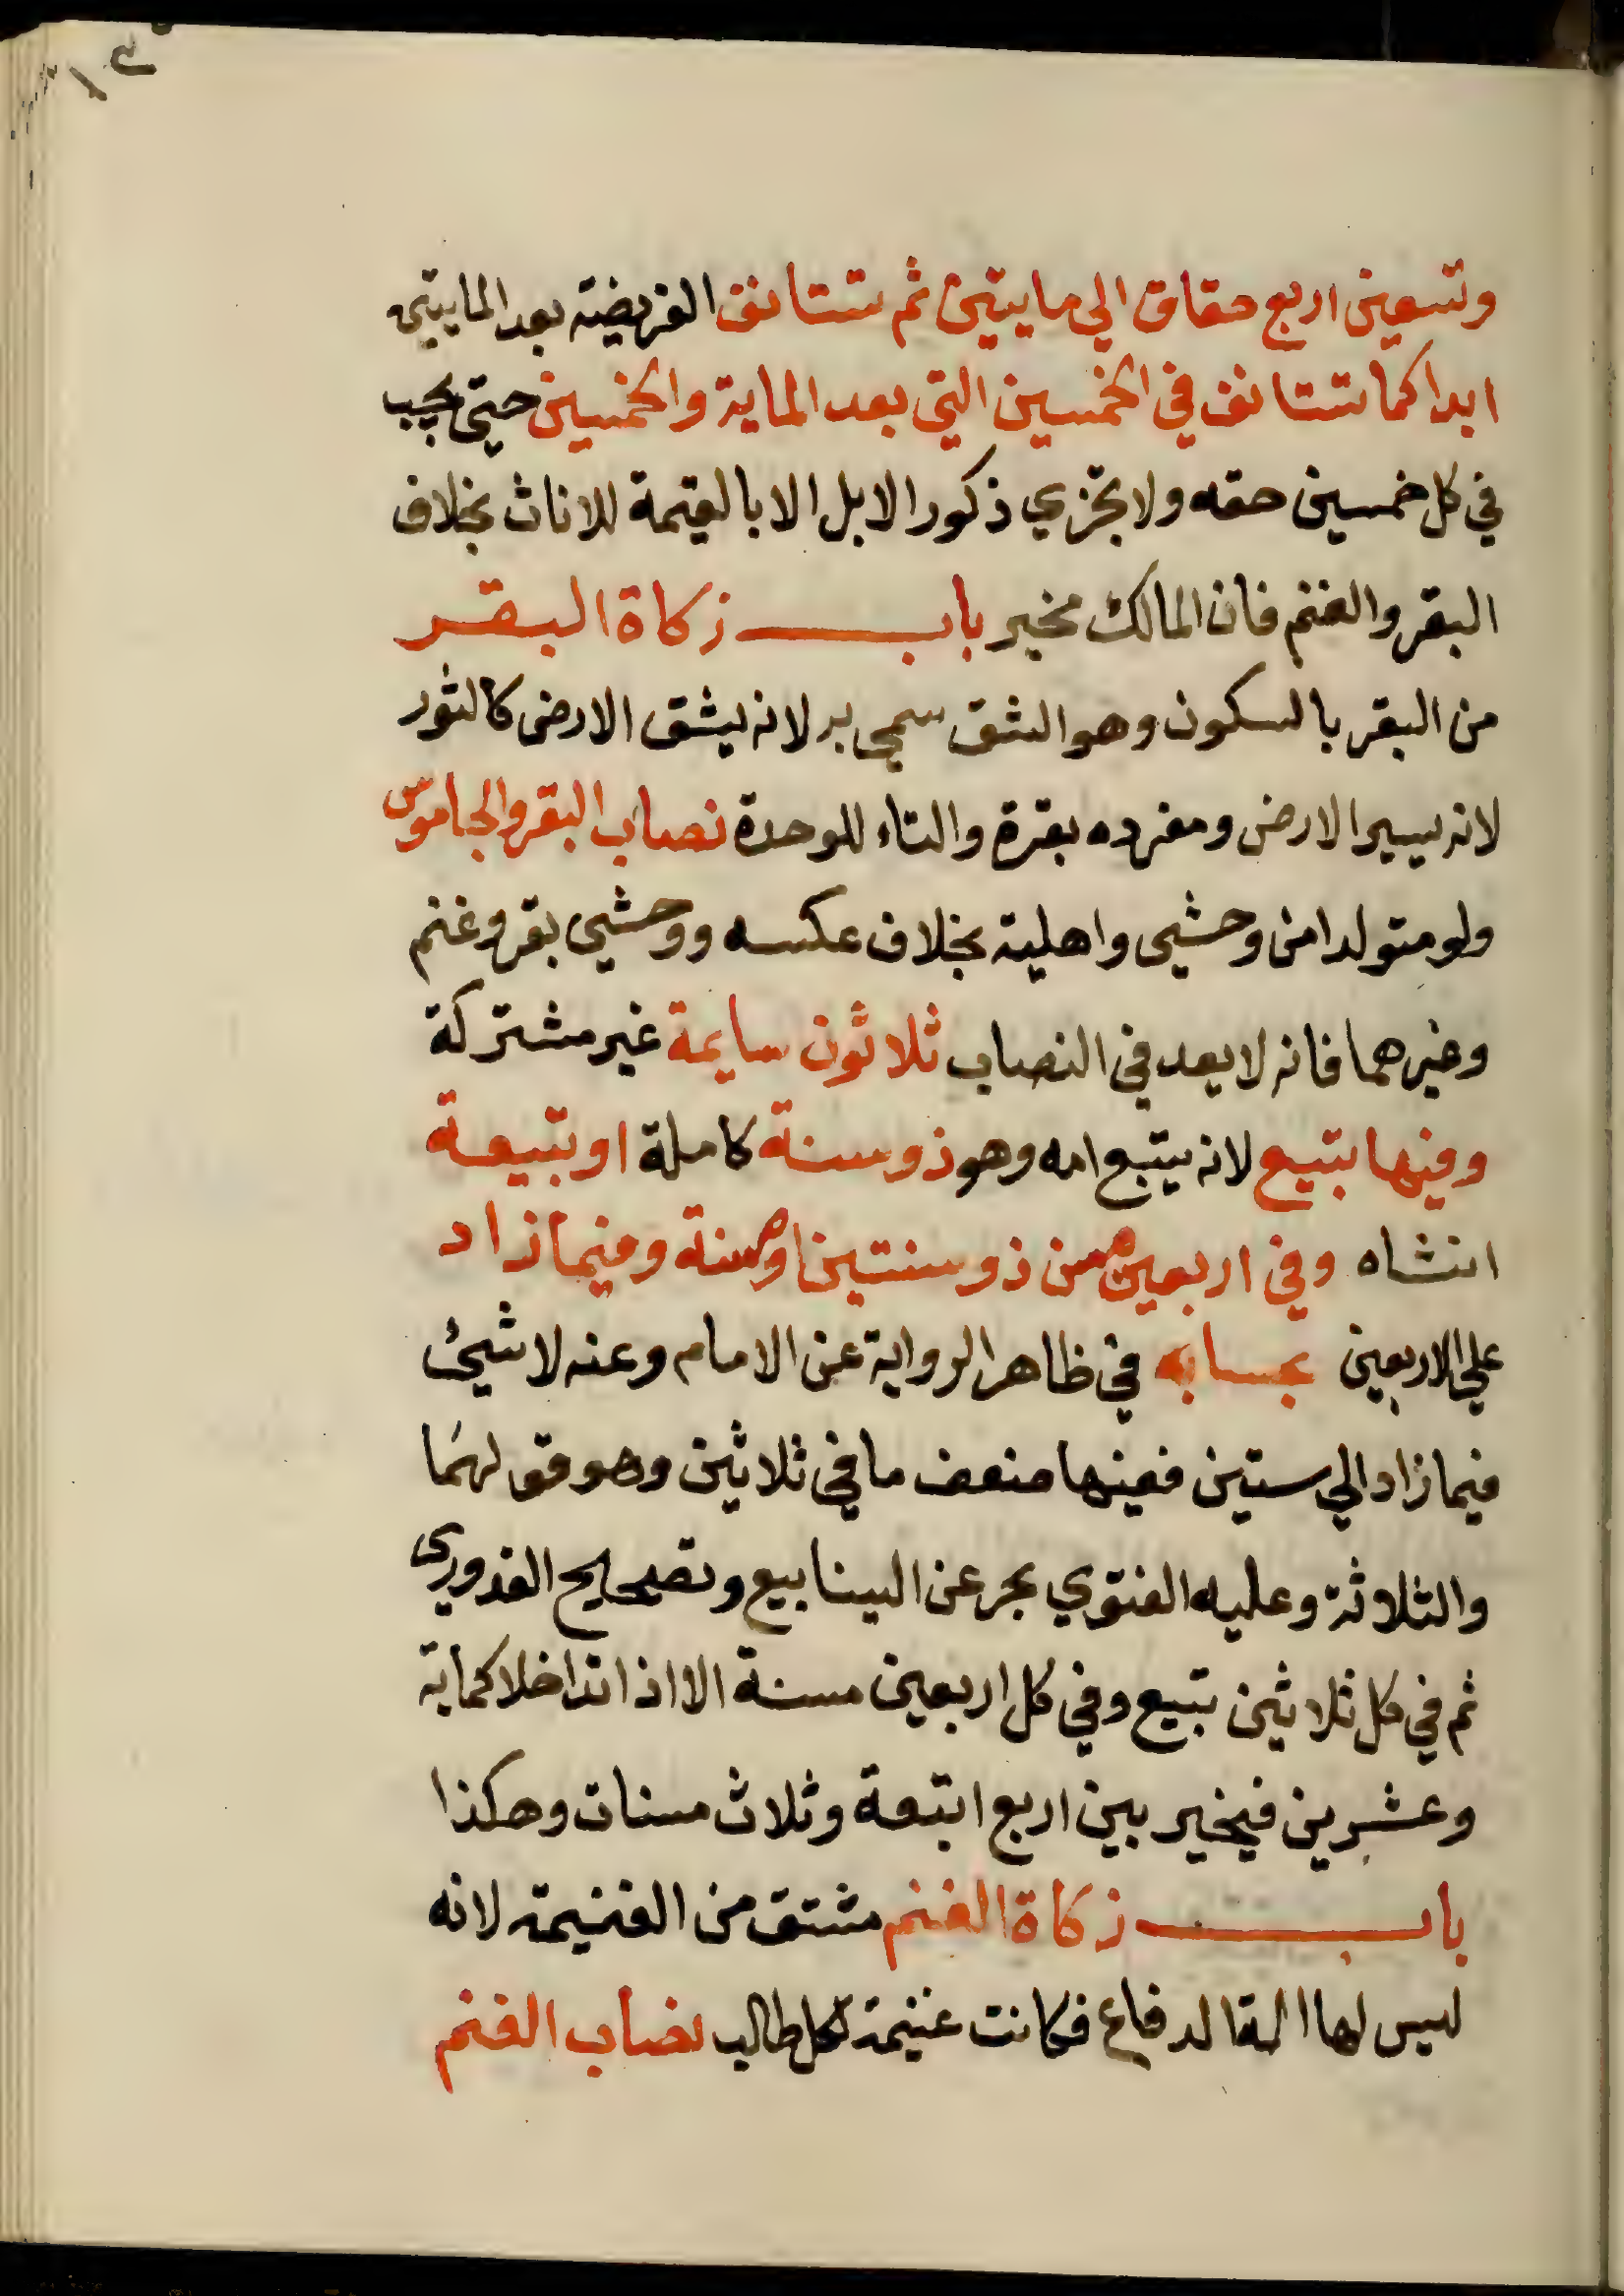 وتسعين اربع حقاق الي مايتين ثم تستانف الفريضة بعد المايتين
ابدا كما تستانف في الخمسين التي بعد الماية والخمسين حتي يجب
في كل خمسين حقه ولا تجزي ذكور الابل الا بالقيمة للاناث بخلاف
البقر والغنم فان المالك مخير باب زكاة البقر
من البقر بالسكون وهو الشق سمي به لانه يشق الارض كالثور
لانه يسير الارض ومفرده بقرة والتاء للوحدة نصاب البقر والجاموس
ولو متولدا من وحشي واهلية بخلاف عكسه ووحشي بقر وغنم
وغيرهما فانه لا يعد في النصاب ثلاثون سايمة غير مشتركة
وفيها تبيع لانه يتبع امه وهو ذو سنة كاملة او تبيعة
انثاه وفي اربعين مسن ذو سنتين او مسنة وفيما زاد
علي الاربعين بحسابه في ظاهر الرواية عن الامام وعنه لا شيئ
فيما زاد الي ستين ففيها ضعف ما في ثلاثين وهو قولهما
والثلاثة وعليه الفتوي بحر عن الينابيع وتصحيح القدوري
ثم في كل ثلاثين تبيع وفي كل اربعين مسنة الا اذا تداخلا كماية
وعشرين فيخير بين اربع اتبعة وثلاث مسنات وهكذا
باب زكاة الغنم مشتق من الغنيمة لانه
ليس لها الة الدفاع فكانت غنيمة لكل طالب نصاب الغنم